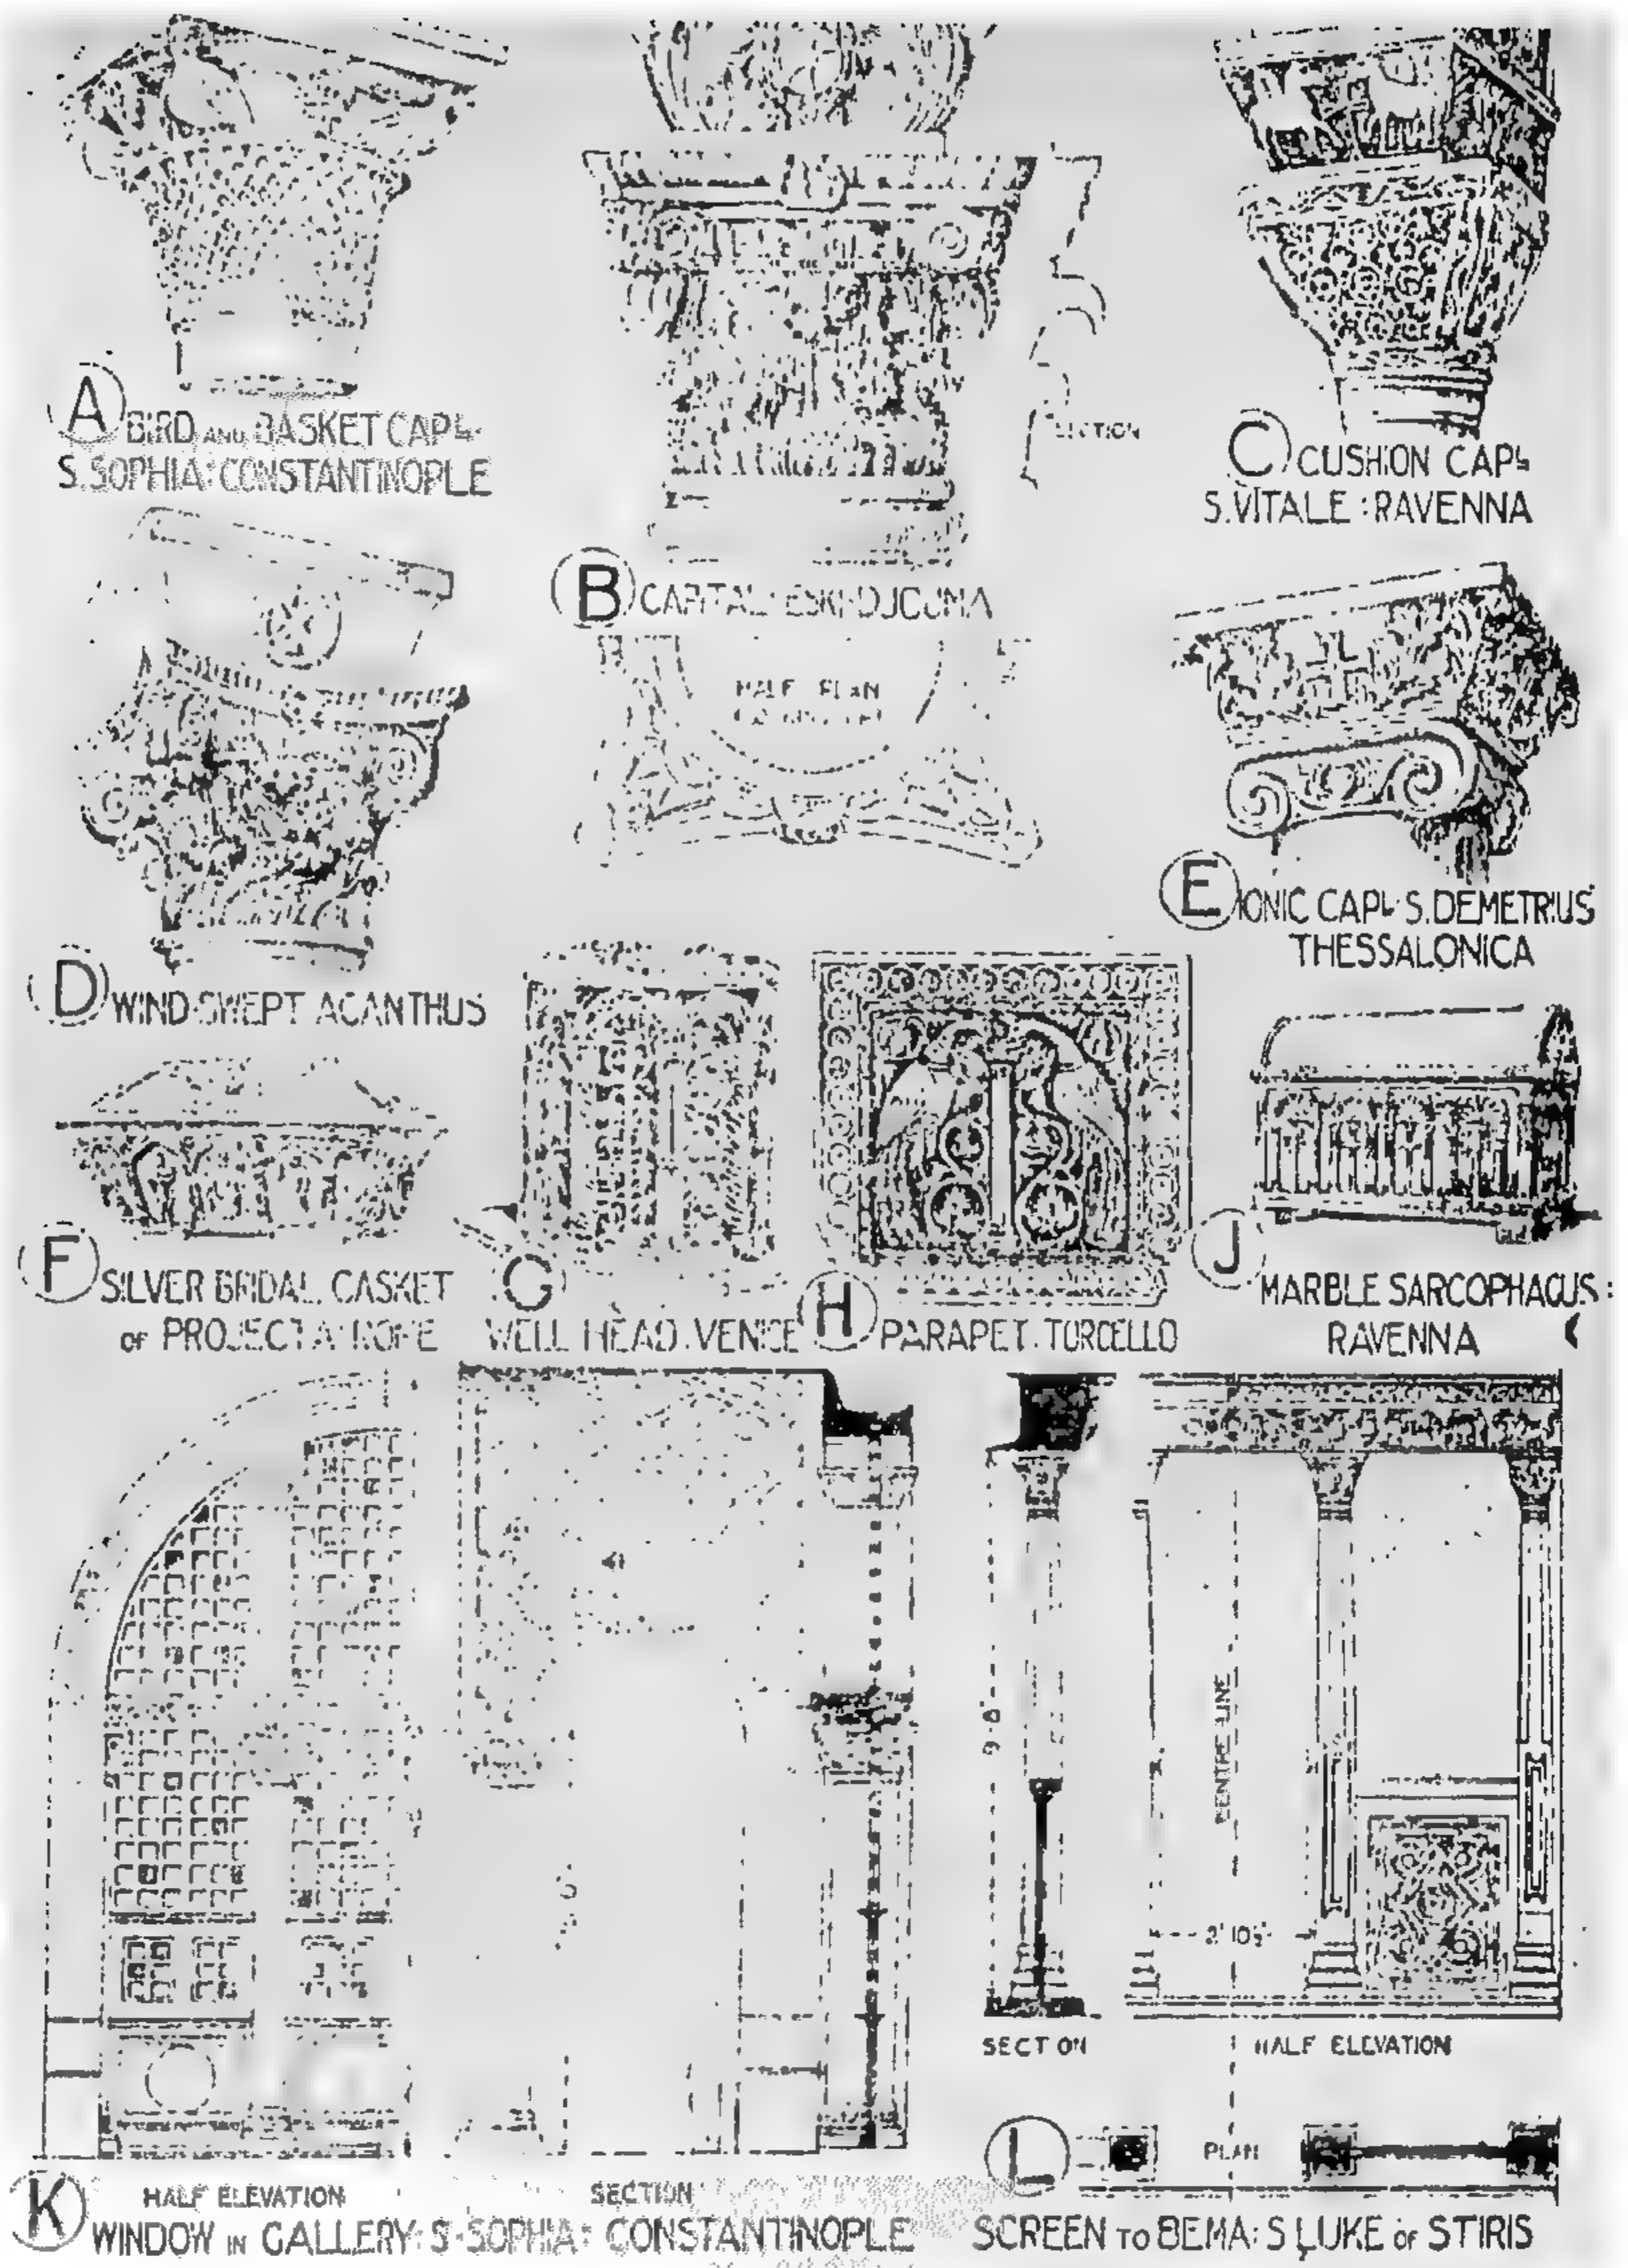 A BIRD AND BASKET CAPL.
S. SOPHIA: CONSTANTINOPLE
SECTION
C CUSHION CAPL
S. VITALE: RAVENNA
B CAPITAL: ESKI-DJOUMA
HALF PLAN
E IONIC CAPL. S. DEMETRIUS
THESSALONICA
D WIND-SWEPT ACANTHUS
F SILVER BRIDAL CASKET
OF PROJECTA: ROME
G
WELL HEAD. VENICE
H PARAPET. TORCELLO
J
MARBLE SARCOPHAGUS:
RAVENNA
9'. 0"
CENTRE LINE
2' 10½"
SECTION
HALF ELEVATION
L
PLAN
K HALF ELEVATION
SECTION
WINDOW IN GALLERY: S. SOPHIA: CONSTANTINOPLE
SCREEN TO BEMA: S. LUKE OF STIRIS